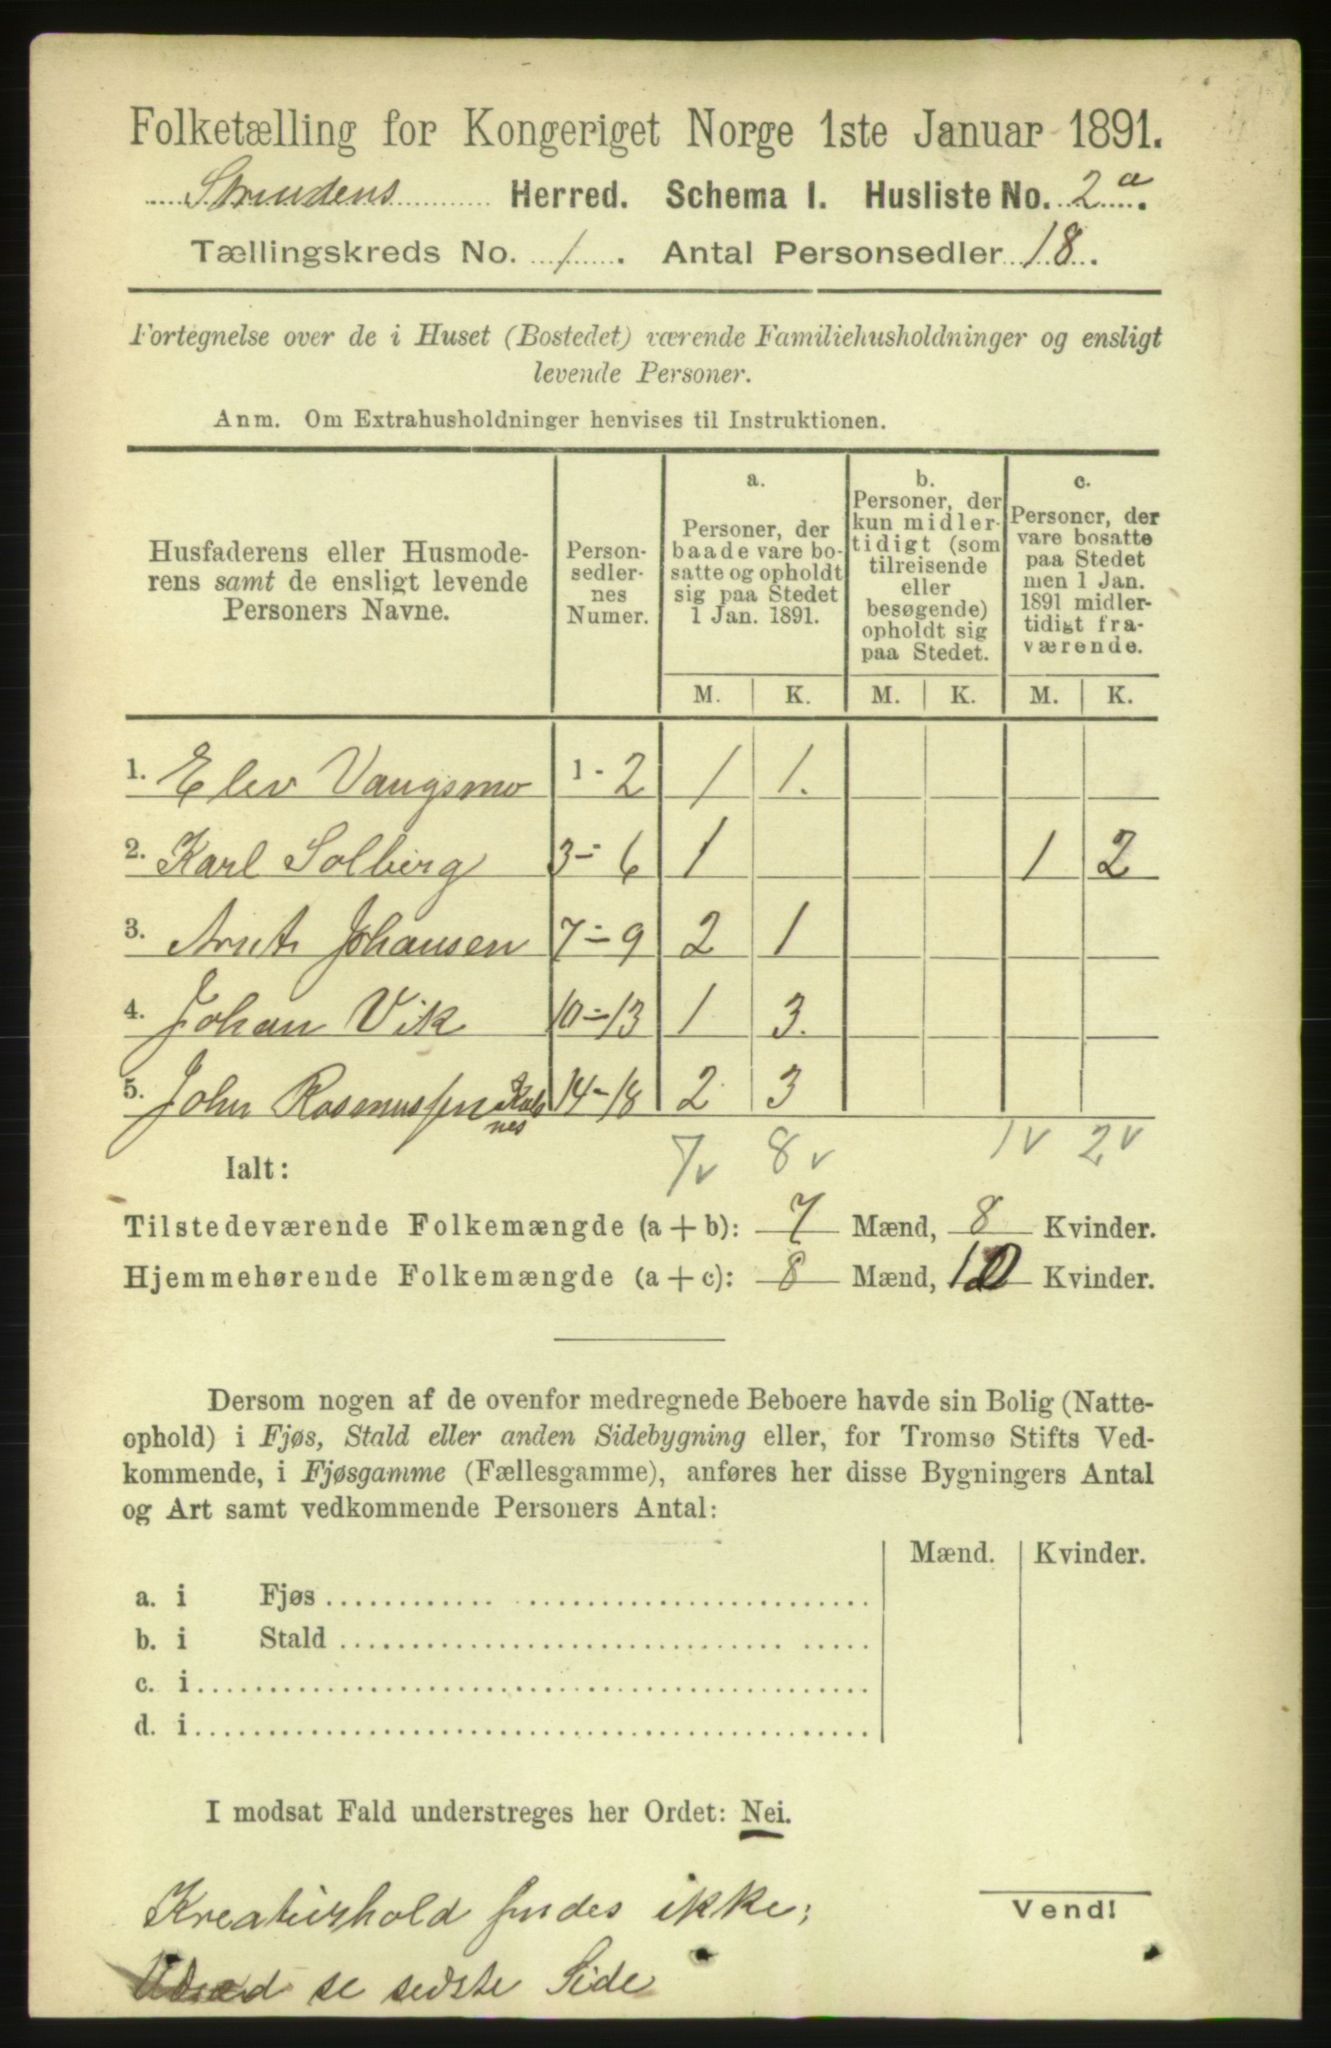 Folketælling for Kongeriget Norge 1ste Januar 1891.
Strindens Herred. Schema I. Husliste No. 2 a.
Tællingskreds No. 1. Antal Personsedler 18.
Fortegnelse over de i Huset (Bostedet) værende Familiehusholdninger og ensligt
levende Personer.
Anm. Om Extrahusholdninger henvises til Instruktionen.
Husfaderens eller Husmode-
rens samt de ensligt levende
Personers Navne.
Person-
sedler-
nes
Numer.
a.
Personer, der
baade vare bo-
satte og opholdt
sig paa Stedet
1 Jan. 1891.
b.
Personer, der
kun midler-
tidigt (som
tilreisende
eller
besøgende)
opholdt sig
paa Stedet.
c.
Personer, der
vare bosatte
paa Stedet
men 1 Jan.
1891 midler-
tidigt fra-
værende.
M. K. M. K. M. K.
1. Elev Vangsmo 1-2 1 1.
2. Karl Solberg 3-6 1 1 2
3. Arnt Johansen 7-9 2 1
4. Johan Vik 10-13 1 3.
5. John Rasmussen 14-18 2 3
Ialt: 7v 8v 1v 2v
Tilstedeværende Folkemængde (a + b): 7 Mænd, 8 Kvinder.
Hjemmehørende Folkemængde (a + c): 8 Mænd, 10 Kvinder.
Dersom nogen af de ovenfor medregnede Beboere havde sin Bolig (Natte-
ophold) i Fjøs, Stald eller anden Sidebygning eller, for Tromsø Stifts Ved-
kommende, i Fjøsgamme (Fællesgamme), anføres her disse Bygningers Antal
og Art samt vedkommende Personers Antal:
Mænd. Kvinder.
a. i Fjøs
b. i Stald
c. i
d. i
I modsat Fald understreges her Ordet: Nei.
Kreaturhold findes ikke;
Vend!
se sidste Side